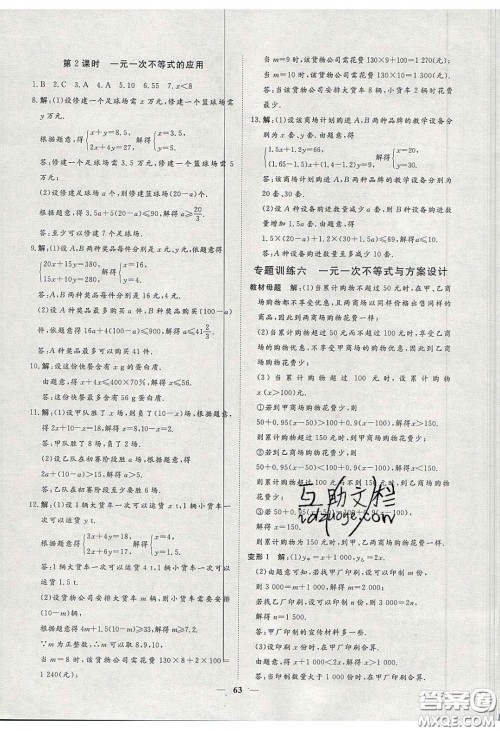 第2课时 一元一次不等式的应用
1. B 2. C 3. A 4. A 5. 10 6. 55 7. x<8
8. 解:(1)设修建一个足球场需x万元,修建一个篮球场需
y万元,
根据题意,得{x+y=8.5, 解得{x=3.5,
答:修建一个足球场需3.5万元,修建一个篮球场需5
万元.
(2)设修建足球场a个,则修建篮球场(20-a)个.
根据题意,得3.5a+5(20-a)≤90,解得a≥20/3.
答:至少可以修建7个足球场.
9. 解:(1)设A,B两种奖品每件分别是x元,y元.依题意,得
{20x+15y=380, 解得{x=16,
15x+10y=280. y=4.
答:A,B两种奖品每件分别是16元,4元.
(2)设购买A种奖品a件,则购买B种奖品(100-a)件.
根据题意,得16a+4(100-a)≤900,解得a≤41 2/3.
答:A种奖品最多购买41件.
10. 解:设这份快餐含有x g的蛋白质.
由题意,得x+4x≤400×70%,解得x≤56.
答:这份快餐最多含有56 g蛋白质.
11. 解:(1)设甲队胜了x场,则负了(10-x)场.根据题意,
得2x+10-x=18,解得x=8.
答:甲队胜了8场,负了2场.
(2)设乙队在初赛阶段胜a场.根据题意,得
2a+(10-a)>15,解得a>5.
答:乙队在初赛阶段至少要胜6场.
1 t.根据题意,得
答:1辆大货车一次可以运货4 t,1辆小货车一次可以
运货1.5 t.
(2)设货物公司安排大货车m辆,则小货车需要安排
(10-m)辆.
根据题意,得4m+1.5(10-m)≥33,解得m≥7.2.
∵m为正整数,∴m可以取8,9,10.
当m=8时,该货物公司需花费130×8+2×100=
1 240(元);
当m=9时,该货物公司需花费130×9+100=1 270(元);
答:当该货物公司安排大货车8辆,小货车2辆时花费
最少.
13. 解:(1)设该商场计划购进A,B两种品牌的教学设备分别
为x套、y套.由题意,得
{1.5x+1.2y=66, 解得{x=20,
(1.65-1.5)x+(1.4-1.2)y=9, y=30.
答:该商场计划购进A,B两种品牌的教学设备分别为
20套、30套.
(2)设A种设备购进数量减少a套,则B种设备购进数量
答:A种设备购进数量最多减少10套.
专题训练六 一元一次不等式与方案设计
教材母题 解:(1)当累计购物不超过50元时,在甲、乙两
商场购物都不享受优惠,且两商场以同样价格出售同样的
商品,因此到两商场购物花费一样.
(2)当累计购物超过50元而不超过100元时,享受乙商
场的购物优惠,不享受甲商场的购物优惠,因此到乙商场
购物花费少.
(3)当累计购物超过100元时,设累计购物
x(x>100)元.
①若到甲商场购物花费少,则
50+0.95(x-50)>100+0.9(x-100),解得x>150.
则累计购物超过150元时,到甲商场购物花费少.
②若到乙商场购物花费少,则
50+0.95(x-50)<100+0.9(x-100),解得x<150.
则累计购物超过100元而不到150元时,到乙商场购物
花费少.
解得x=150.
则累计购物为150元时,到甲、乙两商场购物花费一样.
变形1 解:(1)y甲=x+1 000,y乙=2x.
(2)由题意可知,若找甲厂印刷,可得
x+1 000=3 000,解得x=2 000.
若找乙厂印刷,可得2x=3 000,解得x=1 500.
答:甲厂印制的宣传材料多一些.
(3)设印制x份时,在甲厂印刷合算.
根据题意可得x+1 000<2x,解得x>1 000.
答:当印制数量大于1 000份时,在甲厂的印刷合算.
互助文档
idzuoye.com
63
答案圈
MXQE.COM